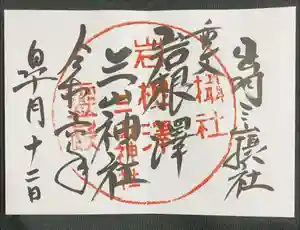 出羽三山摂社
重文
岩根澤
三山神社
令和年
皐月十二日
攝社
岩根澤
三山神社